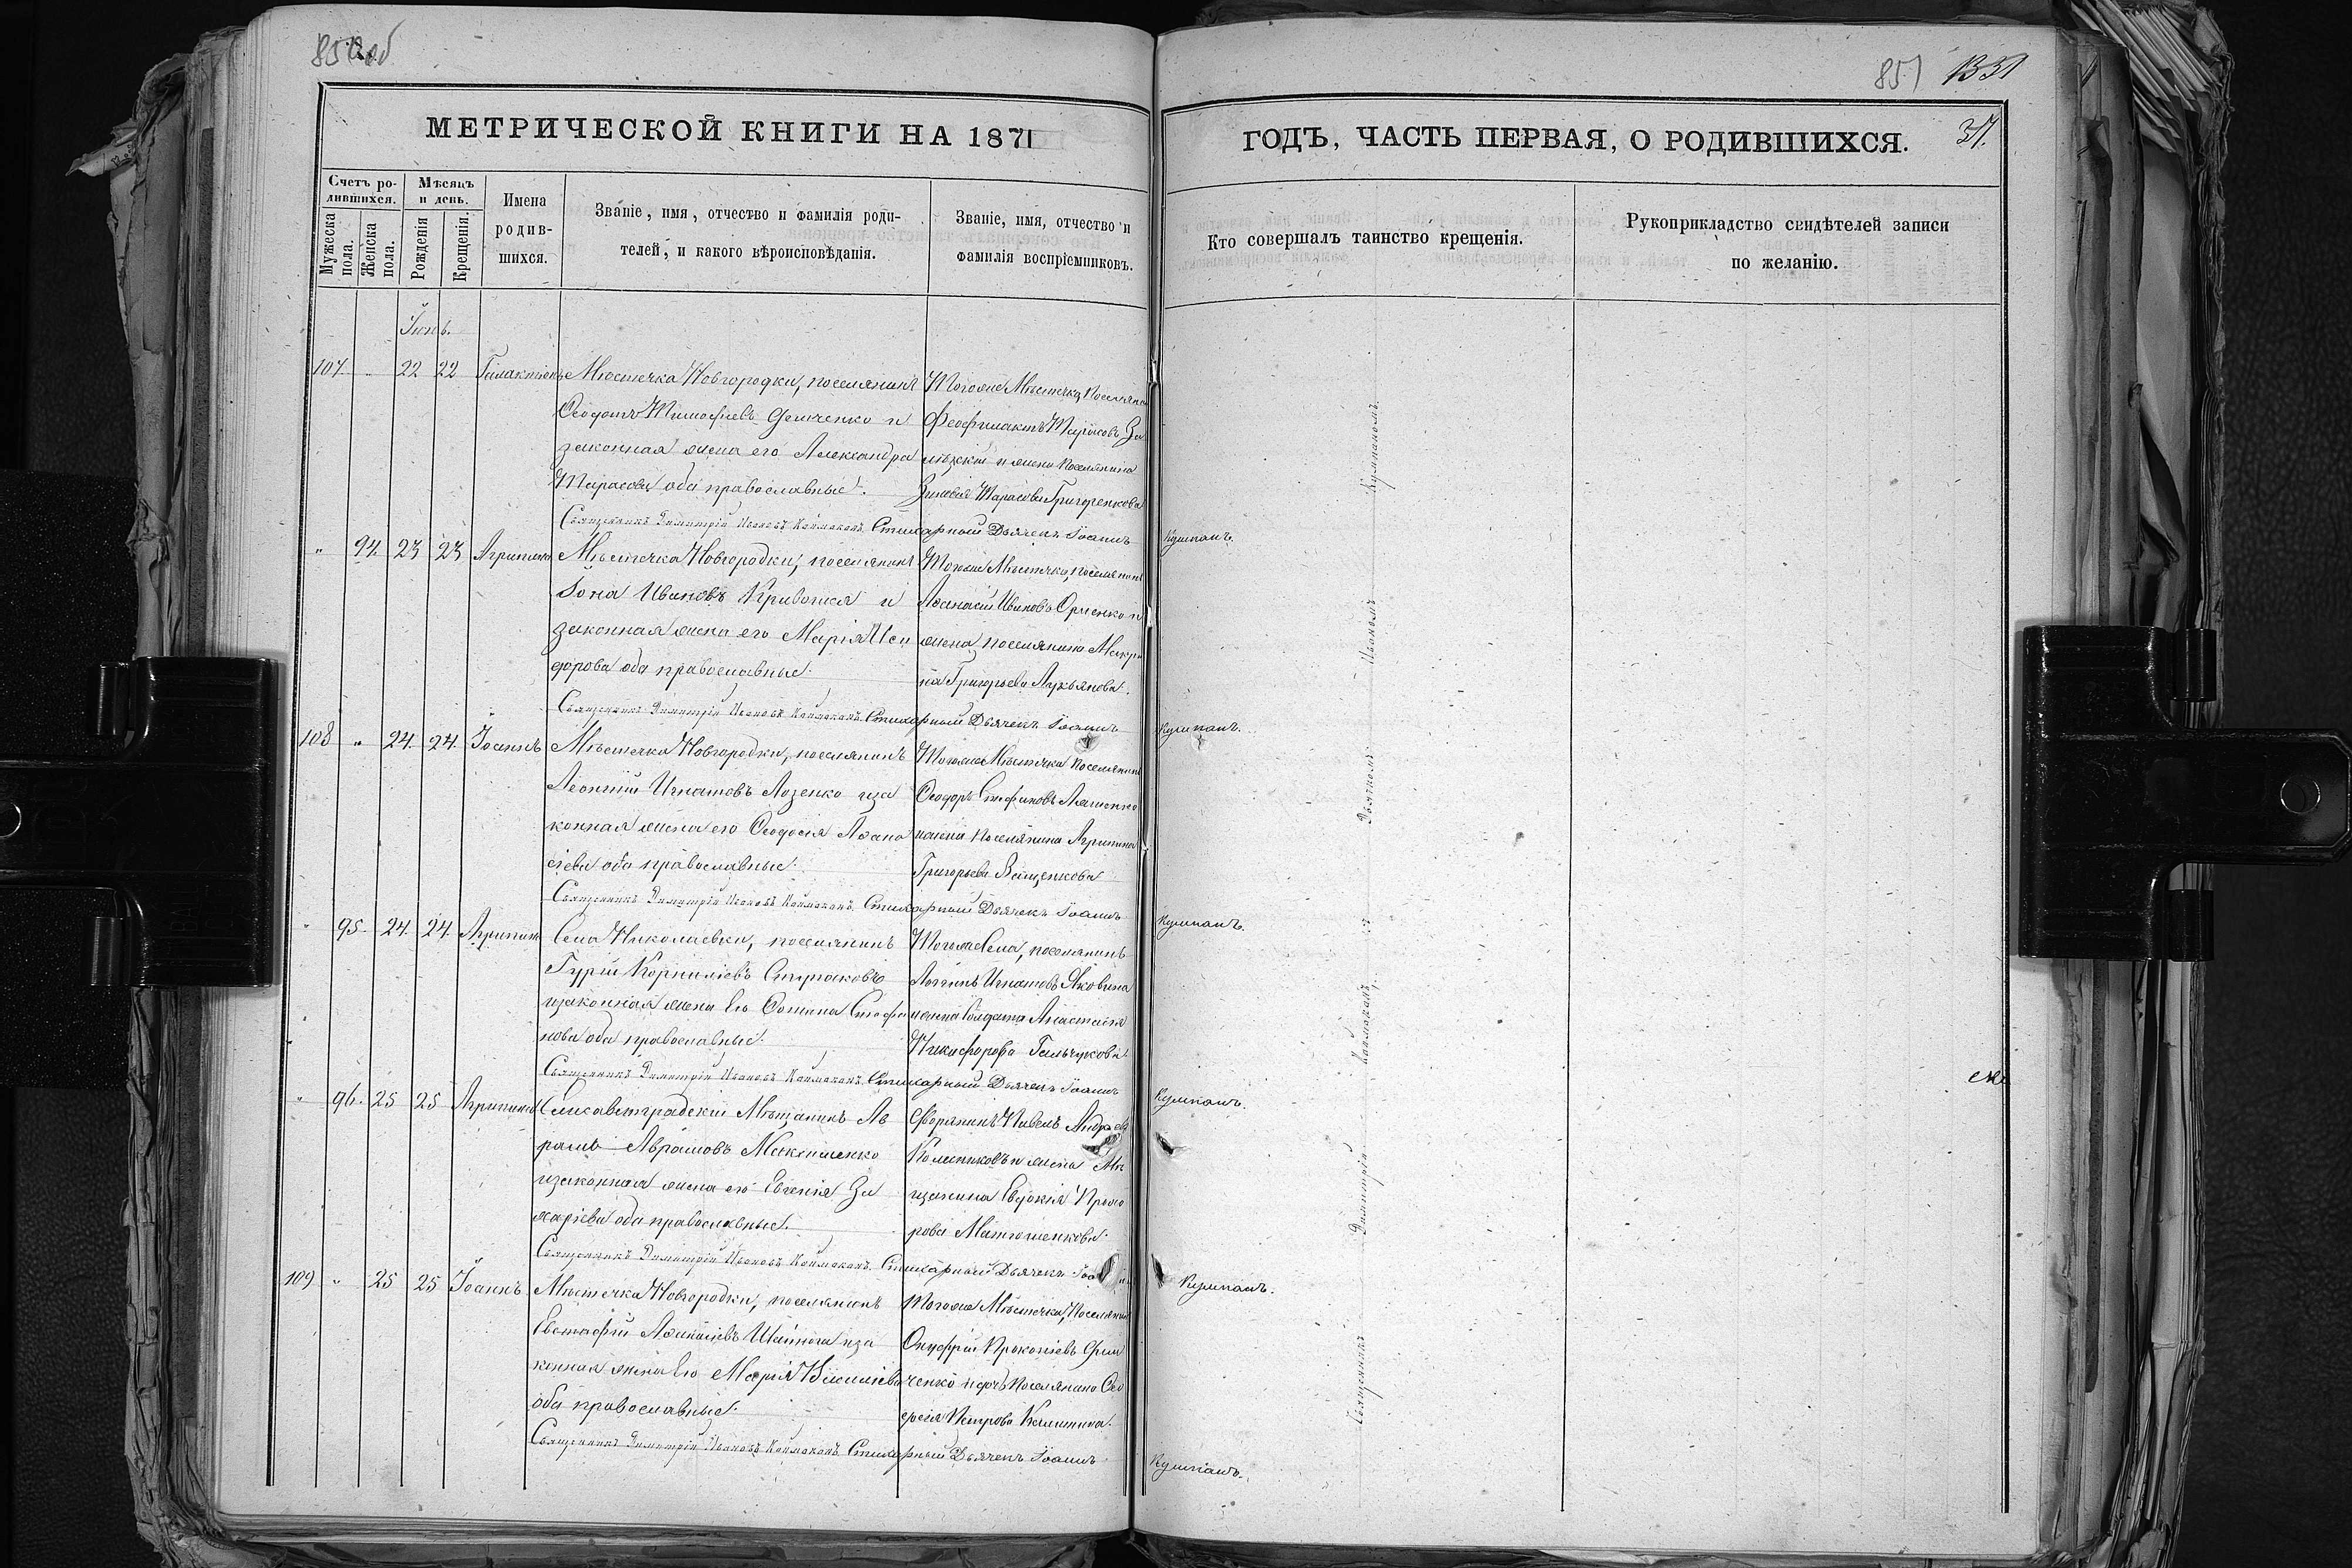 850об
МЕТРИЧЕСКОЙ КНИГИ НА 1871
Счетъ родившихся.
Мужеска пола.
Женска пола.
Мѣсяцъ и день.
Рожденія
Крещенія.
Имена родившихся.
Званіе, имя, отчество и фамилія роди-
телей, и какого вѣроисповѣданія.
Званіе, имя, отчество и
фамилія воспріемниковъ.
Іюнь.
107. „ 22 22 Галактіонъ
Мѣстечка Новгородки, поселянинъ
Ѳеодотъ Тимофѣевъ Демченко и
законная жена его Александра
Тарасова оба православные.
Тогоже Мѣстечка, Поселянинъ
Феофилактъ Тарасовъ За
и жена Поселянина
Зиновія Тарасова Григоренкова
Священникъ Димитрій Ивановъ Каймаканъ. Стихарный Дьячекъ Іоаннъ Кумпанъ.
„ 94. 23 23 Агрипина
Мѣстечка Новгородки, поселянинъ
Іона Ивановъ Кривошея и
законная жена его Марія Иси
дорова оба православные.
Тогоже Мѣстечка, поселянинъ
Аѳанасій Ивановъ и
жена поселянина Макри
на Григорьева Лукьянова.
Священникъ Димитрій Ивановъ Каймаканъ. Стихарный Дьячекъ Іоаннъ Кумпанъ.
108 „ 24. 24. Іоаннъ
Мѣстечка Новгородки, поселянинъ
Леонтій Игнатовъ Лозенко иза
конная жена его Ѳеодосія Аѳана
сіева оба православные.
Тогоже Мѣстечка Поселянинъ
Ѳеодоръ Стефановъ Ляшенко
ижена Поселянина Агрипина
Григорьева Ващенкова
Священникъ Димитрій Ивановъ Каймаканъ. Стихарный Дьячекъ Іоаннъ Кумпанъ.
„ 95. 24. 24. Агрипина
Села Николаевки, поселянинъ
Гурій Корниліевъ Ступаковъ
изаконная жена Его Сотина Стефа
нова оба православные.
Тогоже Села, поселянинъ
Логгинъ Игнатовъ Яковина
ижена Солдата Анастасія
Никифорова Гальчукова
Священникъ Димитрій Ивановъ Каймаканъ. Стихарный Дьячекъ Іоаннъ Кумпанъ.
„ 96. 25 25 Агрипина
Елисаветградскій Мѣщанинъ Ав
рамъ Аврамовъ
изаконная жена его Евгенія За
харіева оба православные.
Дворянинъ Павелъ Андреевъ
Колесниковъ и жена Мѣ
щанина Евдокія Прохо
рова Матюшенкова.
Священникъ Димитрій Ивановъ Каймаканъ. Стихарный Дьячекъ Іоаннъ Кумпанъ.
109 „ 25 25 Іоаннъ
Мѣстечка Новгородки, поселянинъ
Евстафій Аѳанасіевъ Шайнога иза
конная жена Его Марія Василіева
оба православные.
Тогоже Мѣстечка, Поселянинъ
Онуфрій Прокопіевъ Дем
ченко идочь Поселянина Ѳео
досія Петрова Калинина.
Священникъ Димитрій Ивановъ Каймаканъ. Стихарный Дьячекъ Іоаннъ Кумпанъ.
851 1331
ГОДЪ, ЧАСТЬ ПЕРВАЯ, О РОДИВШИХСЯ. 37.
Кто совершалъ таинство крещенія.
Рукоприкладство свидѣтелей записи
по желанію.
Священникъ Димитрій Каймаканъ съ Дьячкомъ Иваномъ Кумпаномъ.